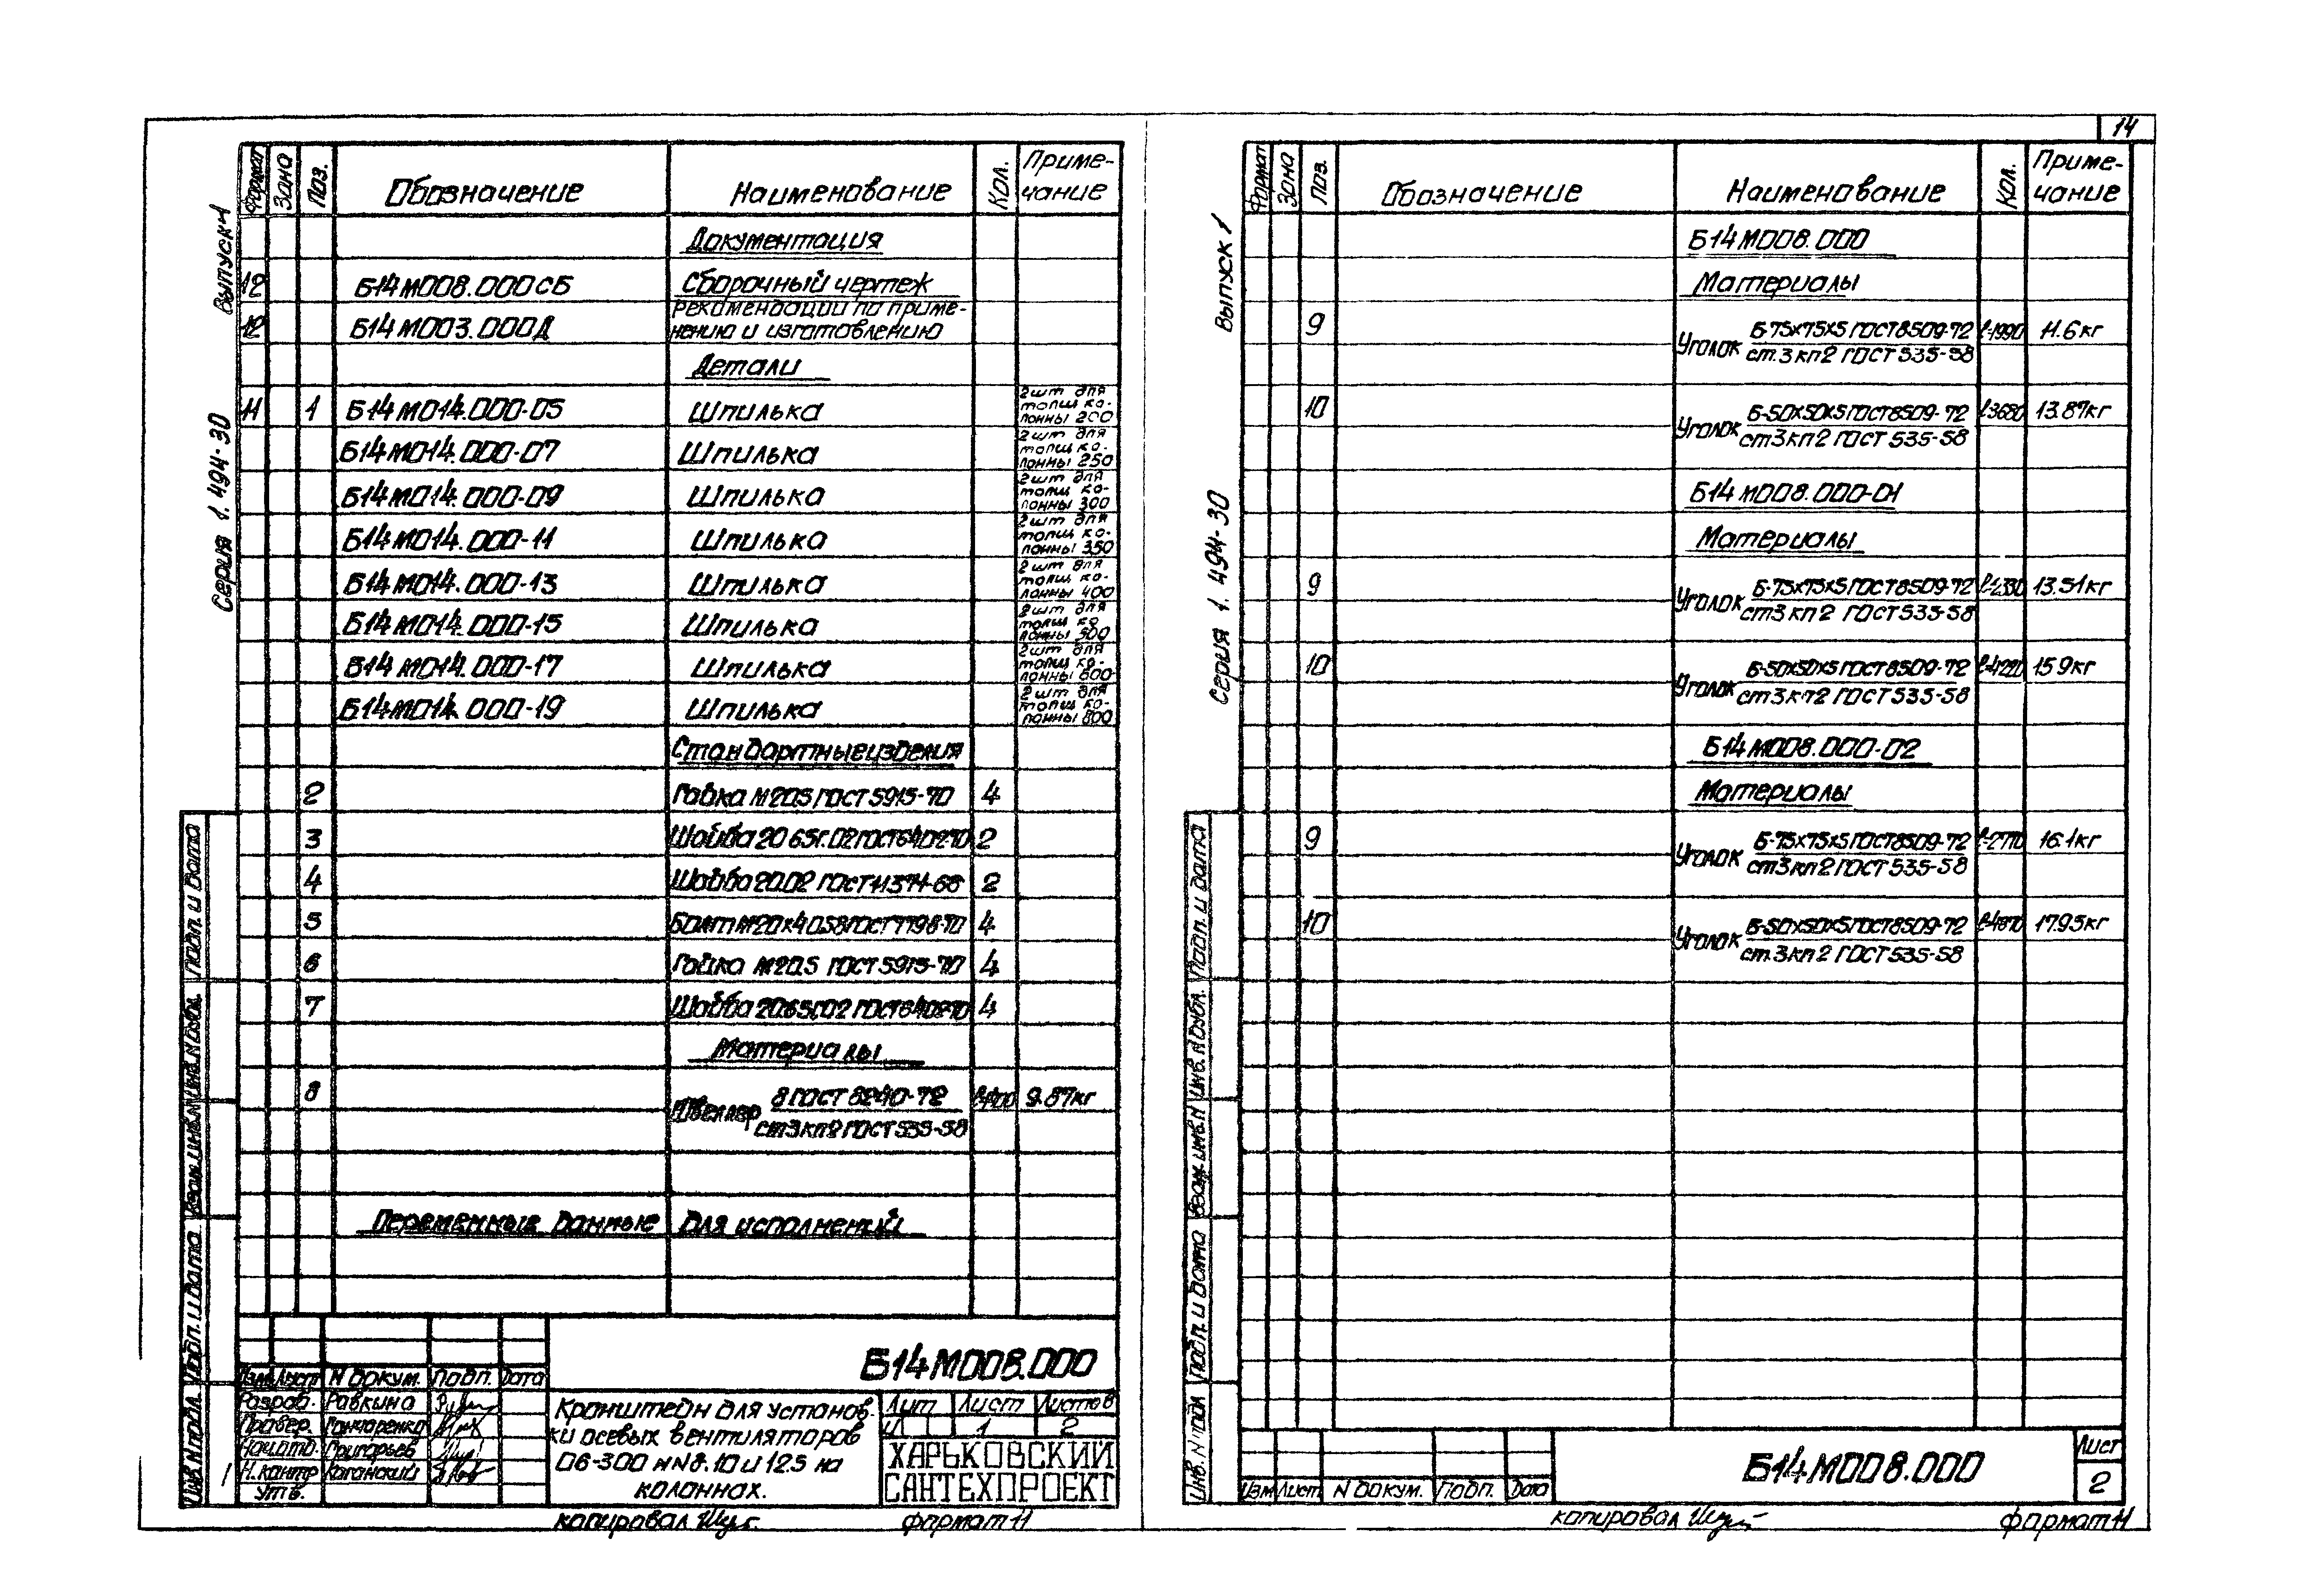 14
Серия 1.494-30 Выпуск 1
Формат Зона Поз. Обозначение Наименование Кол. Приме-
чание
Документация
12 Б14М008.000СБ Сборочный чертеж
12 Б14М003.000Д Рекомендации по приме-
нению и изготовлению
Детали
11 1 Б14М014.000-05 Шпилька 2шт для
толщ ко-
лонны 200
Б14М014.000-07 Шпилька 2шт для
толщ ко-
лонны 250
Б14М014.000-09 Шпилька 2шт для
толщ ко-
лонны 300
Б14М014.000-11 Шпилька 2шт для
толщ ко-
лонны 350
Б14М014.000-13 Шпилька 2шт для
толщ ко-
лонны 400
Б14М014.000-15 Шпилька 2шт для
толщ ко
лонны 500
Б14М014.000-17 Шпилька 2шт для
толщ ко-
лонны 600
Б14М014.000-19 Шпилька 2шт для
толщ ко-
лонны 800
Стандартные изделия
2 Гайка М20.5 ГОСТ 5915-70 4
3 Шайба 20 65Г.02 ГОСТ 6402-70 2
4 Шайба 20.02 ГОСТ 11371-68 2
5 Болт М20х40.58 ГОСТ 7798-70 4
6 Гайка М20.5 ГОСТ 5915-70 4
7 Шайба 20.65Г.02 ГОСТ 6402-70 4
Материалы
8 Швеллер 8 ГОСТ 8240-72 9.87кг
ст3кп2 ГОСТ 535-58
Переменные данные для исполнений
Б14М008.000
Изм Лист N докум. Подп. Дата
Разраб. Равкина
Провер. Гончаренко
Нач.отд. Григорьев
Н.контр Коганский
Утв.
Кронштейн для установ-
ки осевых вентиляторов
06-300 NN8.10 и 12.5 на
колоннах.
Лит Лист Листов
И 1 2
ХАРЬКОВСКИЙ
САНТЕХПРОЕКТ
Инв.N подл. Подп. и дата Взам.инв.N Инв.N дубл. Подп. и дата
копировал формат 11
Серия 1.494-30 Выпуск 1
Формат Зона Поз. Обозначение Наименование Кол. Приме-
чание
Б14М008.000
Материалы
9 Уголок Б-75х75х5 ГОСТ 8509-72 ℓ-1990 11.6кг
ст.3кп2 ГОСТ 535-58
10 Уголок Б-50х50х5 ГОСТ 8509-72 ℓ-3680 13.87кг
ст3кп2 ГОСТ 535-58
Б14М008.000-01
Материалы
9 Уголок Б-75х75х5 ГОСТ 8509-72 ℓ-2330 13.51кг
ст3кп2 ГОСТ 535-58
10 Уголок Б-50х50х5 ГОСТ 8509-72 ℓ-4220 15.9кг
ст3кп2 ГОСТ 535-58
Б14М008.000-02
Материалы
9 Уголок Б-75х75х5 ГОСТ 8509-72 ℓ-2770 16.1кг
ст3кп2 ГОСТ 535-58
10 Уголок Б-50х50х5 ГОСТ 8509-72 ℓ-4870 17.95кг
ст.3кп2 ГОСТ 535-58
Инв.N подл Подп. и дата Взам.инв.N Инв.N дубл. Подп. и дата
Изм Лист N докум. Подп. Дата
Б14М008.000
Лист
2
копировал формат 11